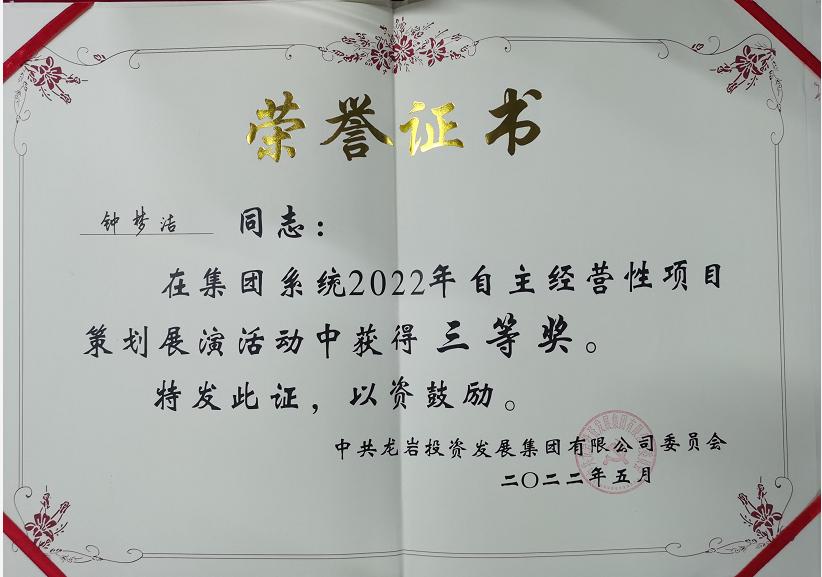 荣誉证书
钟梦洁 同志：
在集团系统2022年自主经营性项目
策划展演活动中获得三等奖。
特发此证，以资鼓励。
中共龙岩投资发展集团有限公司委员会
二〇二二年五月